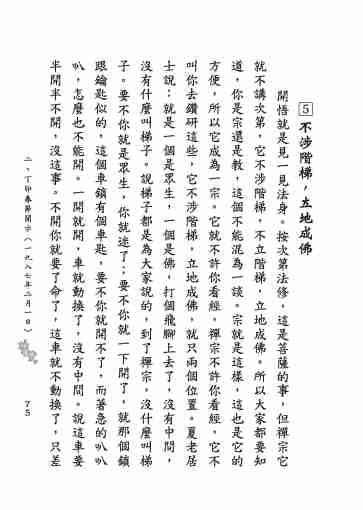 5 不涉階梯，立地成佛
開悟就是見一見法身。按次第法修，這是菩薩的事，但禪宗它
就不講次第，它不涉階梯，不立階梯，立地成佛。所以大家都要知
道，你是宗還是教，這個不能混為一談。宗就是這樣，這也是它的
方便，所以它成為一宗。它就不許你看經，禪宗不許你看經，它不
叫你去鑽研這些，它不涉階梯，立地成佛，就只兩個位置。夏老居
士說：就是一個是眾生，一個是佛，打個飛腳上去了，沒有中間，
沒有什麼叫梯子。說梯子都是為大家說的，到了禪宗，沒什麼叫梯
子。要不你就是眾生，你就迷了；要不你就一下開了，就那個鎖
跟鑰匙似的，這個車鎖有個車匙，要不你就開不了，而著急的叭叭
叭，怎麼也不能開。一開就開，車就動換了，沒有中間。說這車要
半開半不開，沒這事。不開你就要了命了，這車就不動換了，只差
二、丁卯春節開示（一九八七年二月一日）
75